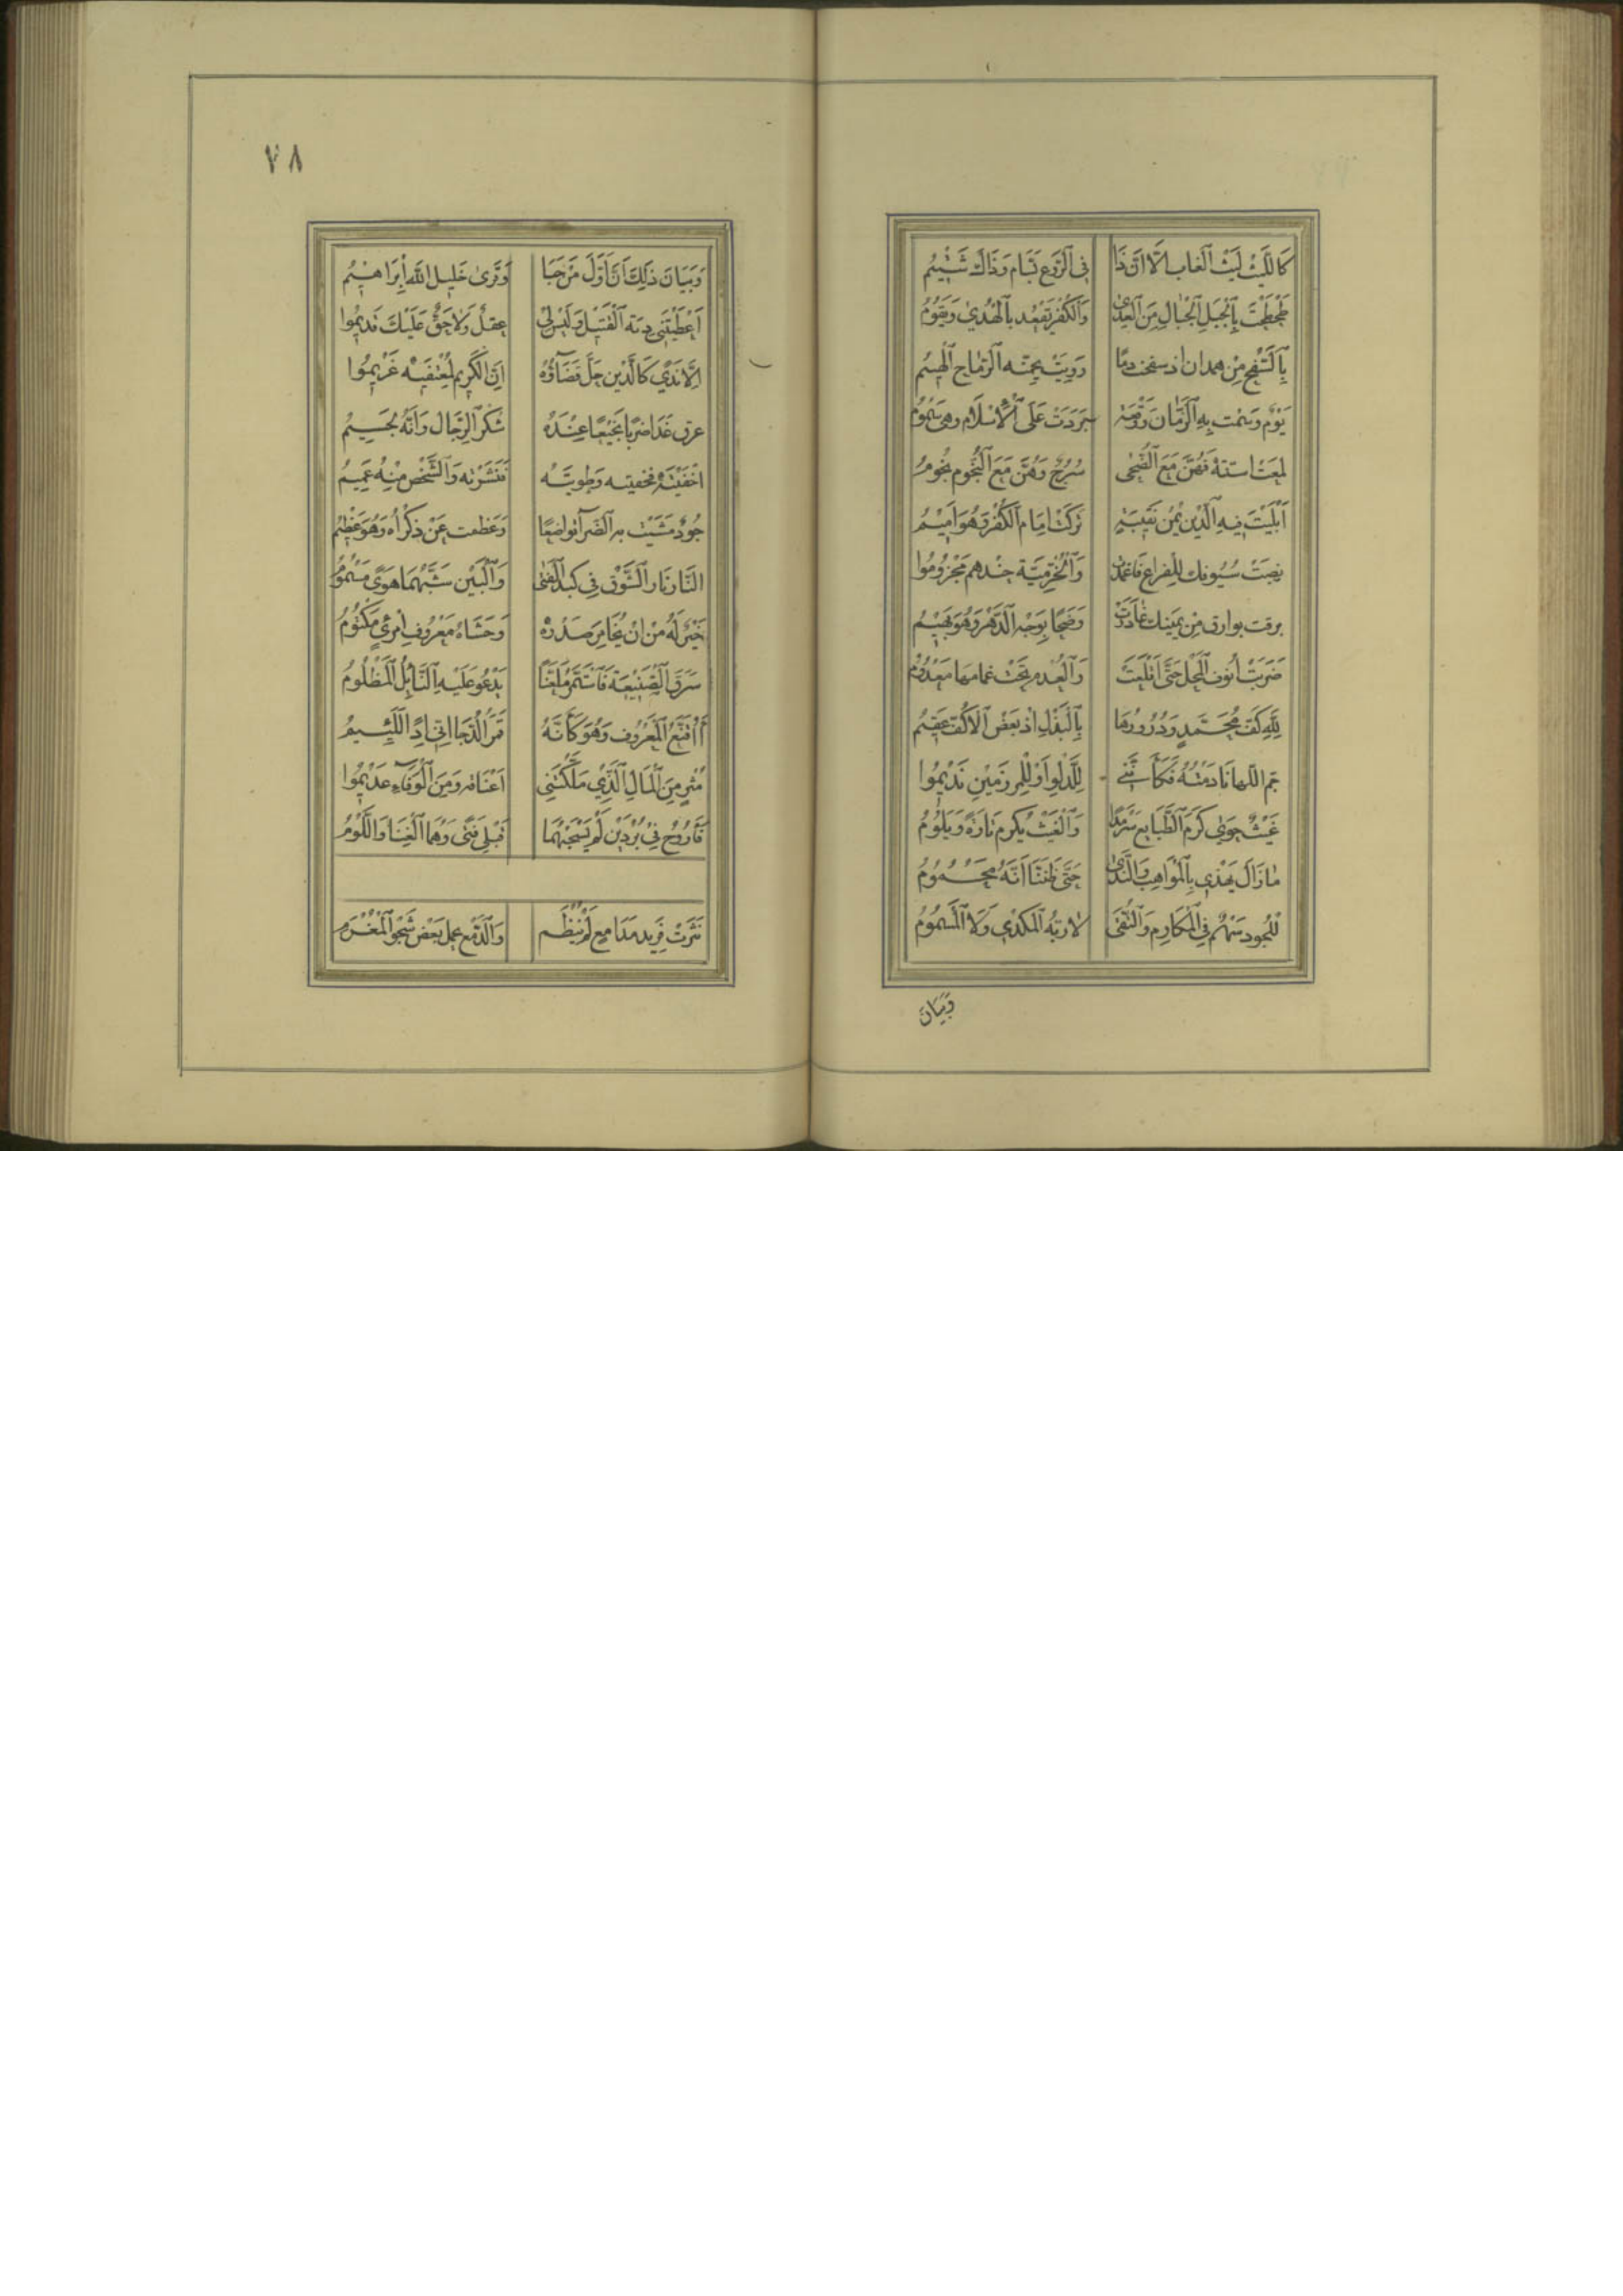 كَاللَّيْثِ لَيْثِ الْغَابِ الَّا انَّ ذَا فِي الرَّوْعِ بَسَّام وَذَاكَ شَتِيْمُ
طَحْطَحْتَ بِالْخَيْلِ الْجِبَالَ مِنَ الْعِدٰى وَالْكُفْر يَقْعُد بِالْهُدٰى وَيَقُوْمُ
بِالسَّفْحِ مِنْ همدان اذ سفحت دمًا رَوِيَتْ بِجمَّتِه الرِّمَاح الْهِيْمُ
يَوْمٌ وَسَمْت بِهِ الزَّمَان وَوَقْعَة بَرَدَتْ عَلَى الْاِسْلَام وهِي سَمُوْمُ
لمعت اسنته فَهُنَّ مَعَ الضُّحٰى سُرُجٌ وَهُنَّ مَعَ النُّجُوم نُجُومُ
اَبْلَيْتَ فِيهِ الدِّيْن يُمْن نَقِيْبَةٍ تَرَكَتْ اِمَام الْكُفْر وَهُوَ اَمِيْمُ
بَرَقت بوارق مِنْ يَمينك غَادَرَتْ وَضَحًا بِوَجْهِ الدَّهْر وَهُوَ بَهِيْمُ
ضَرَبَتْ اُنُوف الْمَحْل حَتَّى اَقْلَعَتْ وَالْعُدْم تَحْتَ غمامها مَعْدُوْم
لِلَّهِ كَفّ مُحَمَّدٍ وَدُرُورُهَا بِالْبَذْلِ اِذْ بَعْضُ الْاَكُفّ عَقِيْم
غَيْثٌ حَوٰى كَرَمَ الطَّبَايِع سَرْمَدًا وَالْغَيْثُ يَكْرم تَارَةً وَيَلُوْمُ
مَا زَالَ يَهْذِي بِالْمَوَاهِب وَالنَّدٰى حَتَّى ظَنَنَّا اَنَّهُ مَحْمُوْمُ
لِلْجُود سَهْمٌ فِي الْمَكَارِم وَالتُّقَى لَا رَبُّهُ الْمُكْدِي وَلَا الْمَسْهُوْمُ
وَبَيَان
٧٨
وَبَيَانُ ذَلِكَ اَنَّ اَوَّلَ مَنْ حَبَا وَقَرٰى خَلِيل اللَّه اِبْرَاهِيْمُ
اَعْطَيْتَنِي دِيَة الْقَتِيل وَلَيْسَ لِي عَقْلٌ وَلَا حَقٌّ عَلَيْكَ قَدِيْمُوا
اِلَّا نَدًى كَالدَّيْن حَلَّ قَضَاؤُهُ اِنَّ الْكَرِيم لِمُعْتَفِيْهِ غَرِيْمُوا
عرق غَدَا ضربًا نَحِيْفًا عِنْدَهُ شُكْر الرِّجَال وَاَنَّهُ لَجَسِيْم
اَخْفَيْتَهُ فَخفيته وَطويتَه فَنَشَرْته وَالشَّخْص مِنْهُ عَمِيْمُ
جُودٌ مَشَيْت به الضَّرآ تواضعًا وَعَظمت عَنْ ذِكْراه وَهُوَ عَظِيْم
النَّار نَار الشَّوْق فِي كَبِد الْفَتٰى وَالْبَيْن
خَيْرٌ لَهُ مِنْ اَنْ يُخَامِر صَدْرهُ وَحَشَاهُ مَعْرُوف امْرِئٍ مَكْتُوْمُ
سَرَقَ الصَّنِيْعَةَ فَاسْتَمَرَّ بِلَعْنَةٍ يَدْعُو عَلَيْهِ النَّائِلُ الْمَظْلُوْمُ
أَأُقَنِّعُ الْمَعْرُوف وَهُوَ كَأَنَّهُ قَمَرُ الدُّجَا اِنِّي اِذًا لَلَئِيْمُ
مُثْرٍ مِنَ الْمَالِ الَّذِي مَلَّكْتَنِي اَعْنَاقه وَمِنَ الْوَفَاءِ عَدِيْمُوا
فَأَرُوْحُ فِي بُرْدَيْنِ لَمْ يَسْحَبْهُمَا قَبْلِي فَتًى وَهُمَا الْغِنَا وَاللَّوْمُ
نَثَرَتْ فَرِيد مَدَامِع لَمْ يُنْظَم وَالدَّمْع يَحْمل بَعْض شَجْو الْمُغْرَم